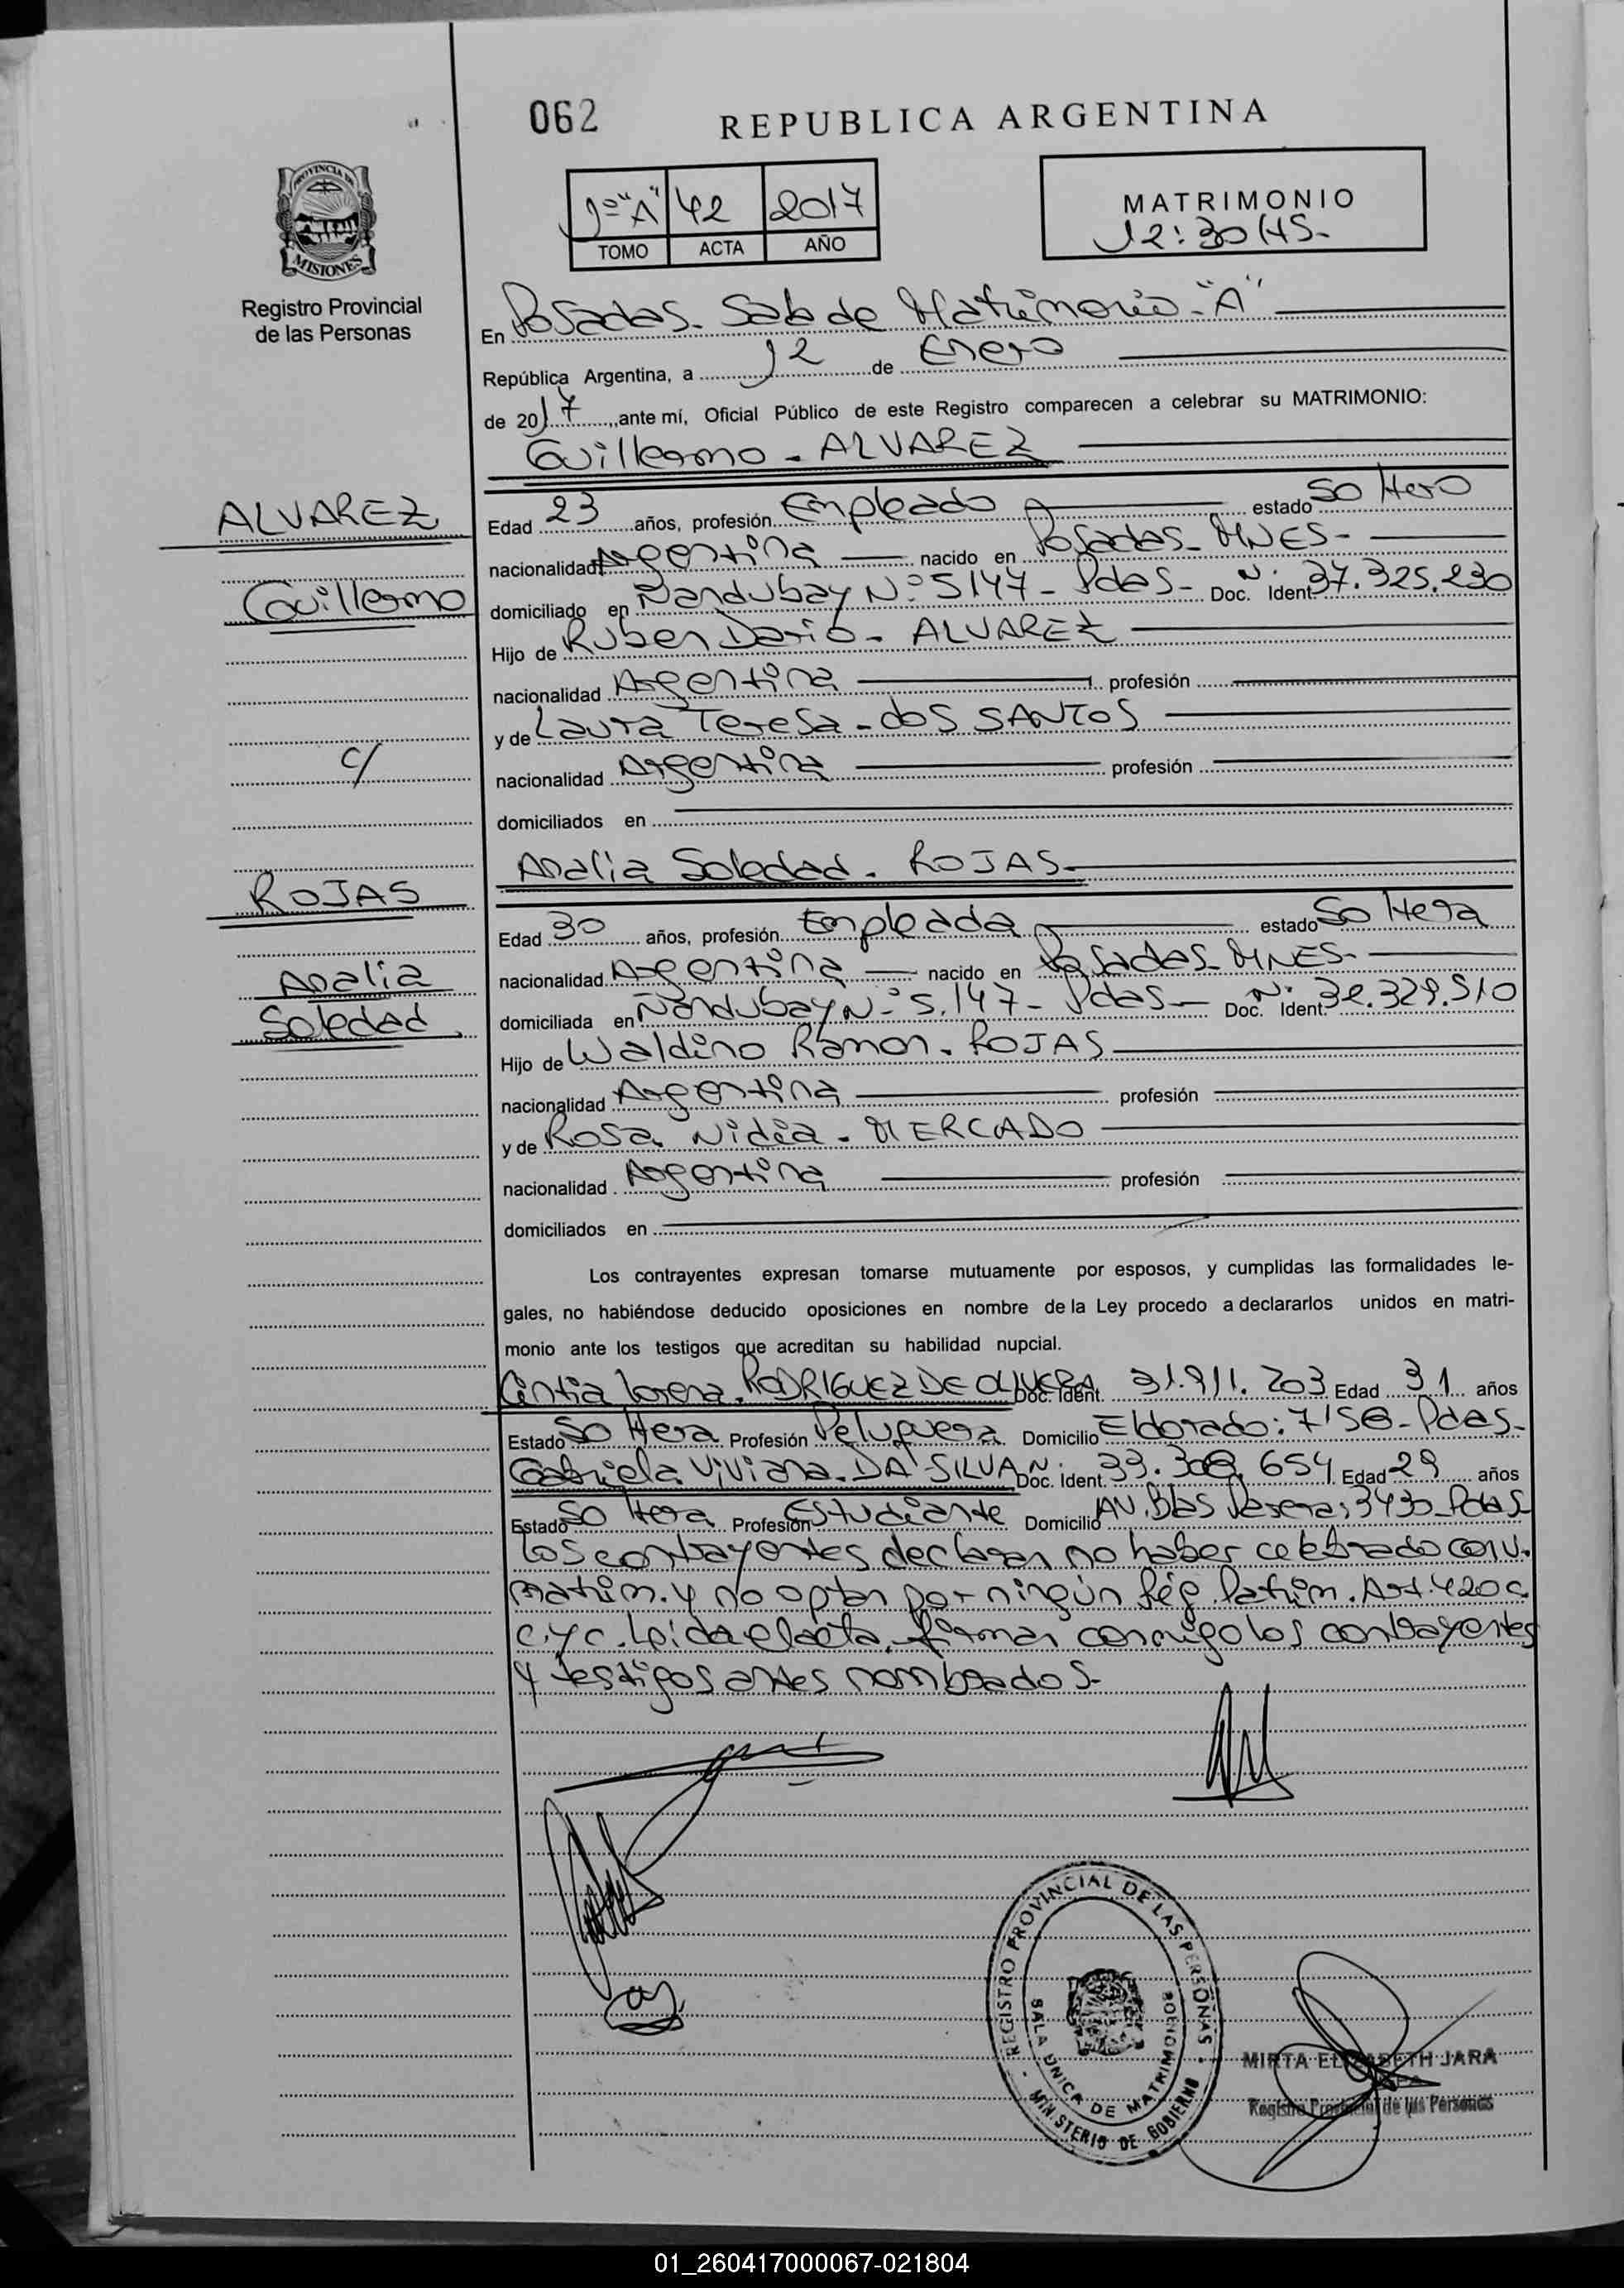 062
REPUBLICA ARGENTINA
1º "A" 42 2017
TOMO ACTA AÑO
MATRIMONIO
12:30 HS.
PROVINCIA DE MISIONES
Registro Provincial
de las Personas
En Posadas. Sala de Matrimonio - "A"
República Argentina, a 12 de Enero
de 2017, ante mí, Oficial Público de este Registro comparecen a celebrar su MATRIMONIO:
Guillermo - ALVAREZ
ALVAREZ
Guillermo
Edad 23 años, profesión Empleado estado Soltero
nacionalidad Argentina nacido en Posadas - MNES -
domiciliado en Ñandubay Nº 5147 - Pdas - Doc. Ident. Nº 37.325.230
Hijo de Ruben Dario - ALVAREZ
nacionalidad Argentina profesión
y de Laura Teresa - dos SANTOS
c/
nacionalidad Argentina profesión
domiciliados en
Analia Soledad - ROJAS
ROJAS
Analia
Soledad
Edad 30 años, profesión Empleada estado Soltera
nacionalidad Argentina nacido en Posadas - MNES -
domiciliada en Ñandubay Nº 5.147 - Pdas - Doc. Ident. Nº 32.329.510
Hijo de Waldino Ramon - ROJAS
nacionalidad Argentina profesión
y de Rosa Nidia - MERCADO
nacionalidad Argentina profesión
domiciliados en
Los contrayentes expresan tomarse mutuamente por esposos, y cumplidas las formalidades le-
gales, no habiéndose deducido oposiciones en nombre de la Ley procedo a declararlos unidos en matri-
monio ante los testigos que acreditan su habilidad nupcial.
Cintia Lorena - RODRIGUEZ DE OLIVERA Doc. Ident. 31.911.203 Edad 31 años
Estado Soltera Profesión Peluquera Domicilio Eldorado: 7158 - Pdas -
Gabriela Viviana - DA SILVA Doc. Ident. Nº 33. 654 Edad 29 años
Estado Soltera Profesión Estudiante Domicilio AV. Blas Parera: 3430 - Pdas
Los contrayentes declaran no haber celebrado conv.
matrim. y no optan por ningún Rég. Patrim. Art. 420 C.
C. y C. Leida el acta, firman conmigo los contrayentes
y testigos antes nombrados -
REGISTRO PROVINCIAL DE LAS PERSONAS
SALA UNICA DE MATRIMONIOS
MINISTERIO DE GOBIERNO
MIRTA ELIZABETH JARA
Registro Provincial de las Personas
01_260417000067-021804